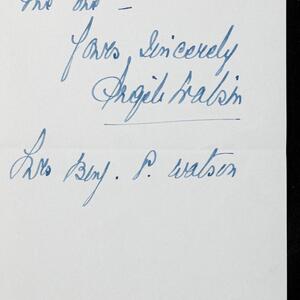 the one –
Yours Sincerely
Angela Watson
Mrs Benj. P. Watson